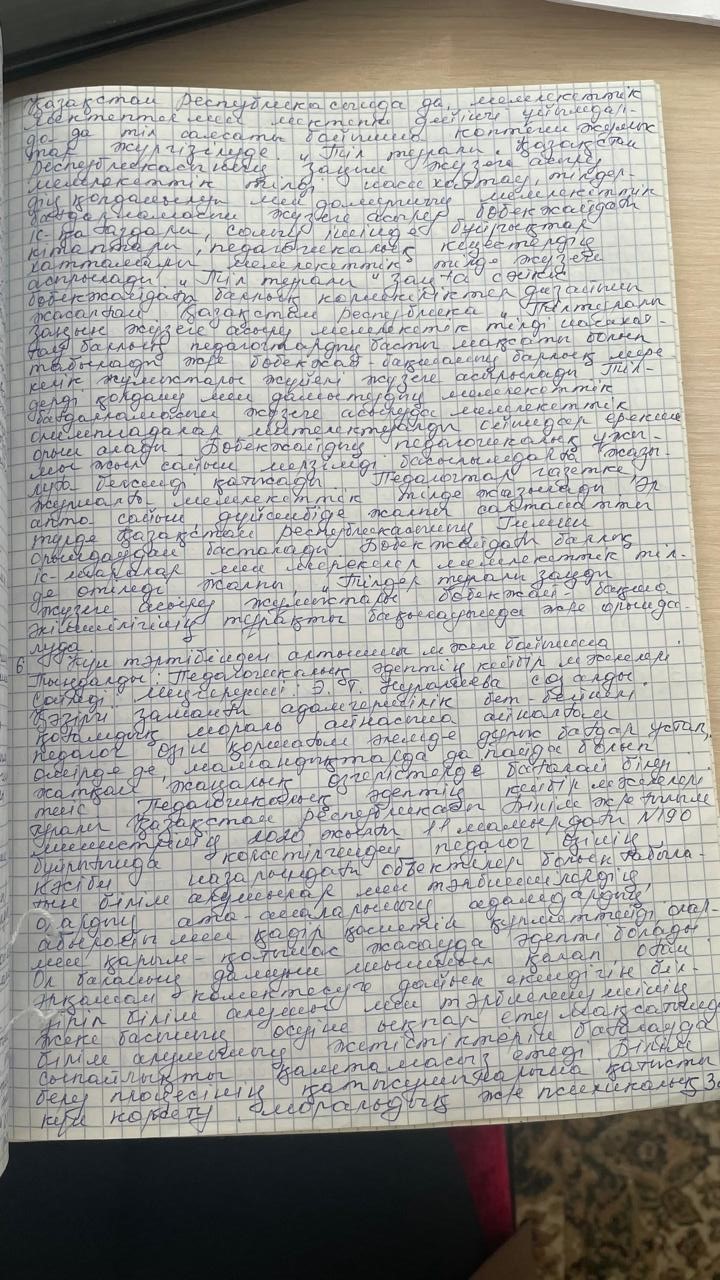 Қазақстан Республикасында да, мемлекеттік
мектептер мен мектепке дейінгі ұйымдар-
да да тіл саясаты бойынша көптеген жұмыс-
тар жүргізілуде. "Тіл туралы" Қазақстан
Республикасының заңын жүзеге асыру
мемлекеттік тілді насихаттау, тілдер-
ді қолданылуы мен дамытудың мемлекеттік
бағдарламасын жүзеге асыру бөбекжайдағы
іс-қағаздары, соның ішінде бұйрықтар
кітаптары, педагогикалық кеңестердің
хаттамалары мемлекеттік тілде жүзеге
асырылады. "Тіл туралы" заңға сәйкес
бөбекжайдағы барлық көрнекіліктер дизайны
жасалған Қазақстан Республика "Тіл туралы
заңын жүзеге асыру мемлекеттік тілді насихат-
тау барлық педагогтардың басты мақсаты болып
табылады және бөбекжай бақшаның барлық мере-
келік жұмыстары жүйелі жүзеге асырылады Тіл-
дерді қолдану мен дамытудың мемлекеттік
бағдарламасын жүзеге асыруда мемлекеттік
олимпиадалар интеллектуалды сайыстар ерекше
орын алады. Бөбекжайдың педагогикалық ұжы-
мы жыл сайын мерзімді басылымдарға жазы-
луға белсенді қатысады Педагогтар газетке,
журналға мемлекеттік тілде жазылады Әр
апта сайын, дүйсенбіде жалпы сап
түрде Қазақстан Республикасының Гимнін
орындаудан басталады Бөбекжайдағы барлық
іс-шаралар мен мерекелер мемлекеттік тіл-
де өтіледі жалпы, "Тілдер туралы заңды
жүзеге асыру жұмыстары бөбекжай-бақша
әкімшілігінің тұрақты бақылауында және орында-
луда.
6 Күн тәртібінен алтыншы мәселе бойынша
тыңдалды: Педагогикалық әдептің кейбір мәселелері
сайтәді. меңгерушісі Э. Т. Нурашева сөз алды.
Қазіргі заманғы адамгершілік бет-бейнесі
қоғамдық мораль айнасына айналған
педагог өзін қоршаған әлемде дұрыс бағдар ұстап,
өмірде де, мамандықтарда да пайда болып
жатқан жаңалық өзгерістерде бағалай білуі
тиіс Педагогикалық әдептің кейбір мәселелері
туралы Қазақстан Республикасы Білім және ғылым
министрінің 2020 жылғы 11 мамырдағы №190
бұйрығында көрсетілгендей педагог өзінің
кәсіби назарындағы объектілер болып табыла-
тын білім алушылар мен тәрбиеленушілердің
олардың ата-аналарының адамдардың
абыройы мен қадір қасиетін құрметтейді олар-
мен қарым-қатынас жасауда әдепті болады
Ол баланың дамуын шынымен қалап оған
әрқашан көмектесуге дайын екендігін біл-
діріп білім алушы мен тәрбиеленушінің
жеке басының өсуіне ықпал ету мақсатында
білім алушының жетістіктерін бағалауда
сыпайлықты қамтамасыз етеді Білім
беру процесінің қатысушыларына қатысты
кері көрсету моральдық және психикалық зо